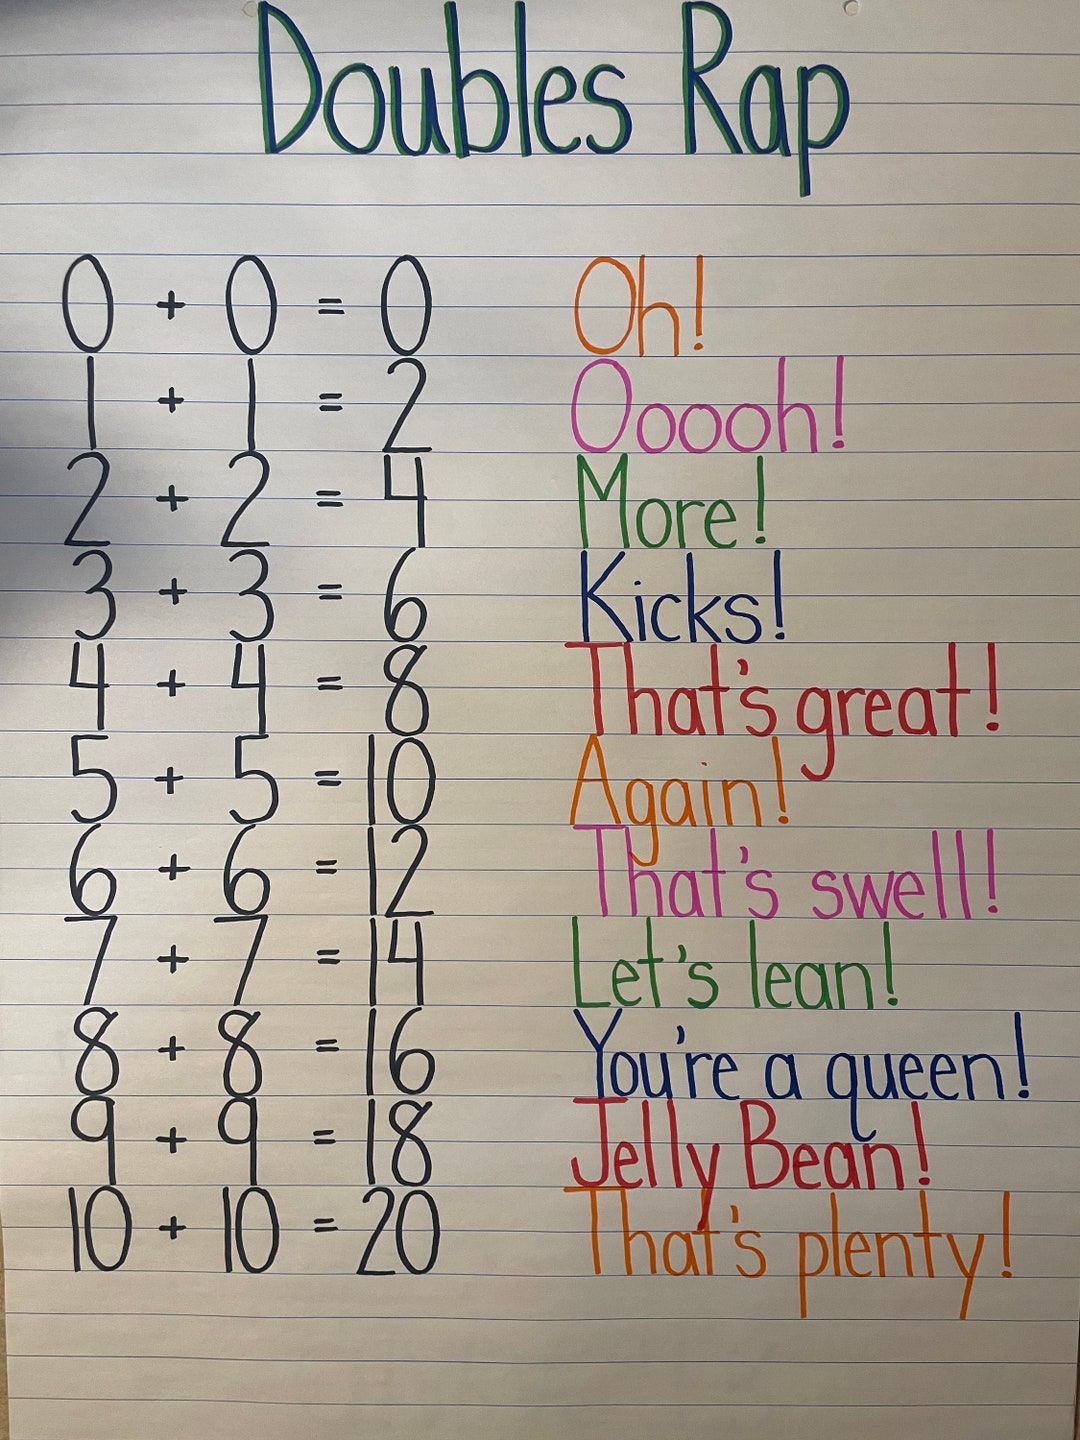 Doubles Rap
0 + 0 = 0 Oh!
1 + 1 = 2 Ooooh!
2 + 2 = 4 More!
3 + 3 = 6 Kicks!
4 + 4 = 8 That's great!
5 + 5 = 10 Again!
6 + 6 = 12 That's swell!
7 + 7 = 14 Let's lean!
8 + 8 = 16 You're a queen!
9 + 9 = 18 Jelly Bean!
10 + 10 = 20 That's plenty!